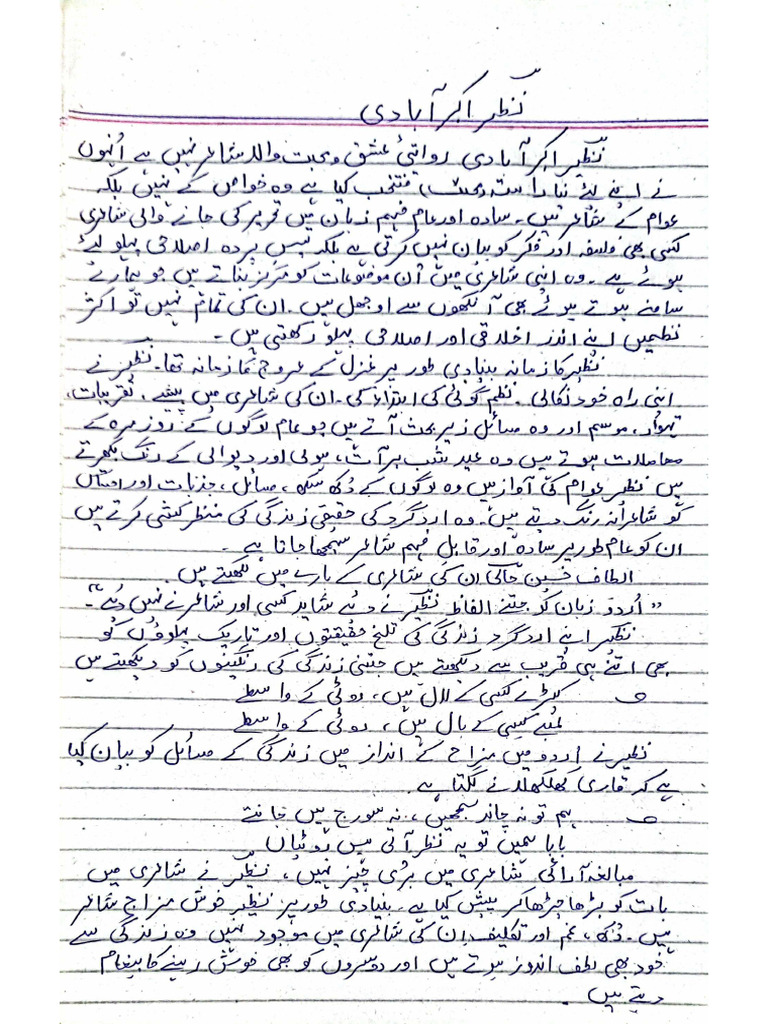 نظیر اکبر آبادی
نظیر اکبر آبادی روایتی عشق و محبت والا شاعر نہیں ہے اُنہوں
نے اپنے لئے نیا راستہ منتخب کیا ہے وہ خواص کے نہیں بلکہ
عوام کے شاعر ہیں۔ سادہ اور عام فہم زبان میں تحریر کی جانے والی شاعری
کسی بھی فلسفہ اور فکر کو بیان نہیں کرتی ہے بلکہ پسِ پردہ اصلاحی پہلو لیئے
ہوئے ہے۔ وہ اپنی شاعری میں اُن موضوعات کو مرکز بناتے ہیں جو ہمارے
سامنے ہوتے ہوئے بھی آنکھوں سے اوجھل ہیں۔ ان کی تمام نہیں تو اکثر
نظمیں اپنے اندر اخلاقی اور اصلاحی پہلو رکھتی ہیں۔
نظیر کا زمانہ بنیادی طور پر غزل کے عروج کا زمانہ تھا۔ نظیر نے
اپنی راہ خود نکالی۔ نظم گوئی کی ابتداء کی۔ ان کی شاعری میں پیشے، تقریبات،
تہوار، موسم اور وہ مسائل زیرِ بحث آتے ہیں جو عام لوگوں کے روزمرہ کے
معاملات ہوتے ہیں وہ عید شب برآت، ہولی اور دیوالی کے رنگ بکھرتے
ہیں نظیر عوام کی آواز ہیں وہ لوگوں کے دُکھ سکھ، مسائل، جذبات اور احساس
کو شاعرانہ رنگ دیتے ہیں۔ وہ اردگرد کی حقیقی زندگی کی منظر کشی کرتے ہیں
ان کو عام طور پر سادہ اور قابلِ فہم شاعر سمجھا جاتا ہے۔
الطاف حسین حالی ان کی شاعری کے بارے میں لکھتے ہیں۔
"اُردو زبان کو جتنے الفاظ نظیر نے دئیے شاید کسی اور شاعر نے نہیں دئیے"۔
نظیر اپنے اردگرد زندگی کی تلخ حقیقتوں اور تاریک پہلوؤں کو
بھی اتنے ہی قریب سے دیکھتے ہیں جتنی زندگی کی رنگینیوں کو دیکھتے ہیں
کپڑے کسی کے لال ہیں، روٹی کے واسطے
لمبے کسی کے بال ہیں، روٹی کے واسطے
نظیر نے اردو میں مزاح کے انداز میں زندگی کے مسائل کو بیان کیا
ہے کہ قاری کھلکھلانے لگتا ہے۔
ہم تو نہ چاند سمجھیں، نہ سورج ہیں جانتے
بابا ہمیں تو یہ نظر آتی ہیں روٹیاں
مبالغہ آرائی شاعری میں بُری چیز نہیں، نظیر نے شاعری میں
بات کو بڑھا چڑھا کر پیش کیا ہے۔ بنیادی طور پر نظیر خوش مزاج شاعر
ہیں۔ دُکھ، غم اور تکلیف ان کی شاعری میں موجود نہیں وہ زندگی سے
خود بھی لطف اندوز ہوتے ہیں اور دوسروں کو بھی خوش رہنے کا پیغام
دیتے ہیں۔